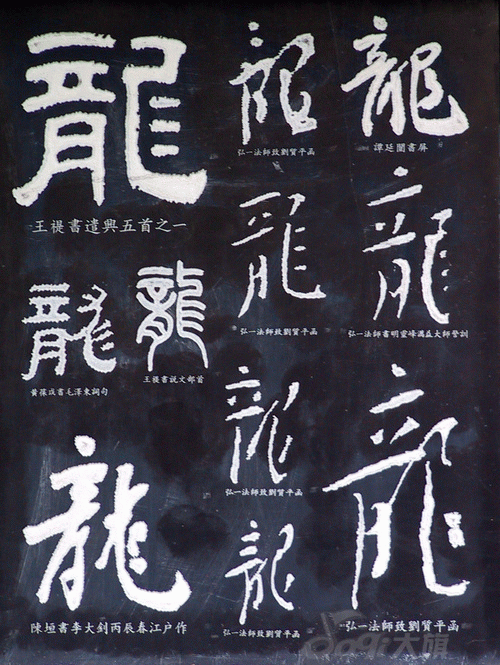 龍
王禔書遣興五首之一
龍
弘一法師致劉質平函
龍
譚延闓書屏
龍
弘一法師致劉質平函
龍
弘一法師書明靈峰益大師警訓
龍
黃葆戉書毛澤東詞句
龍
王禔書說文部首
龍
弘一法師致劉質平函
龍
陳垣書李大釗丙辰春江戶作
龍
弘一法師致劉質平函
龍
弘一法師致劉質平函
大旗